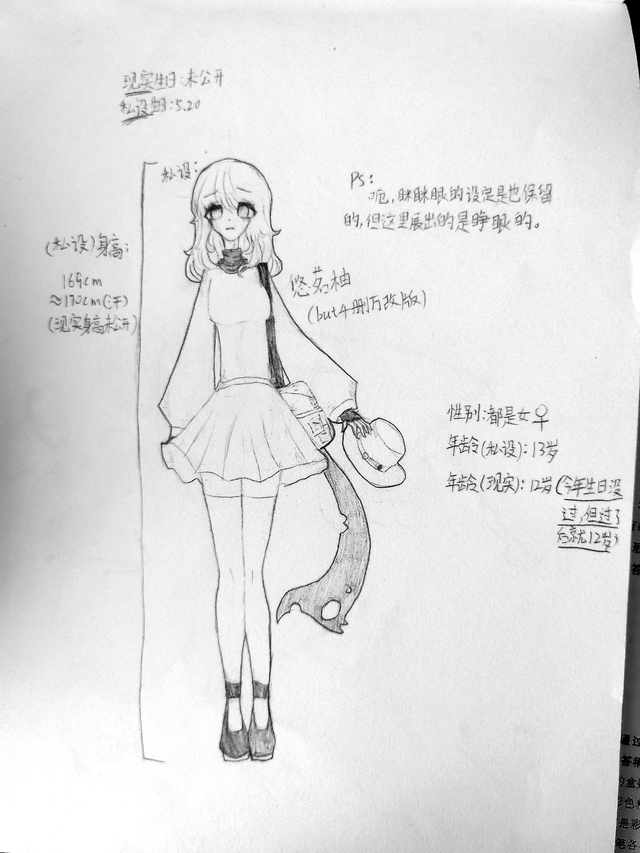 现实生日:未公开
私设生日:5.20
私设:
Ps:
呃,眯眯眼的设定是也保留
的,但这里展出的是睁眼的。
(私设)身高:
169cm
≈170cm(汗)
(现实身高未公开)
悠茗柚
(but4删万改版)
性别:都是女♀
年龄(私设):13岁
年龄(现实):12岁(今年生日没
过,但过了
后就12岁)
通过
答稱
是彩
笔各